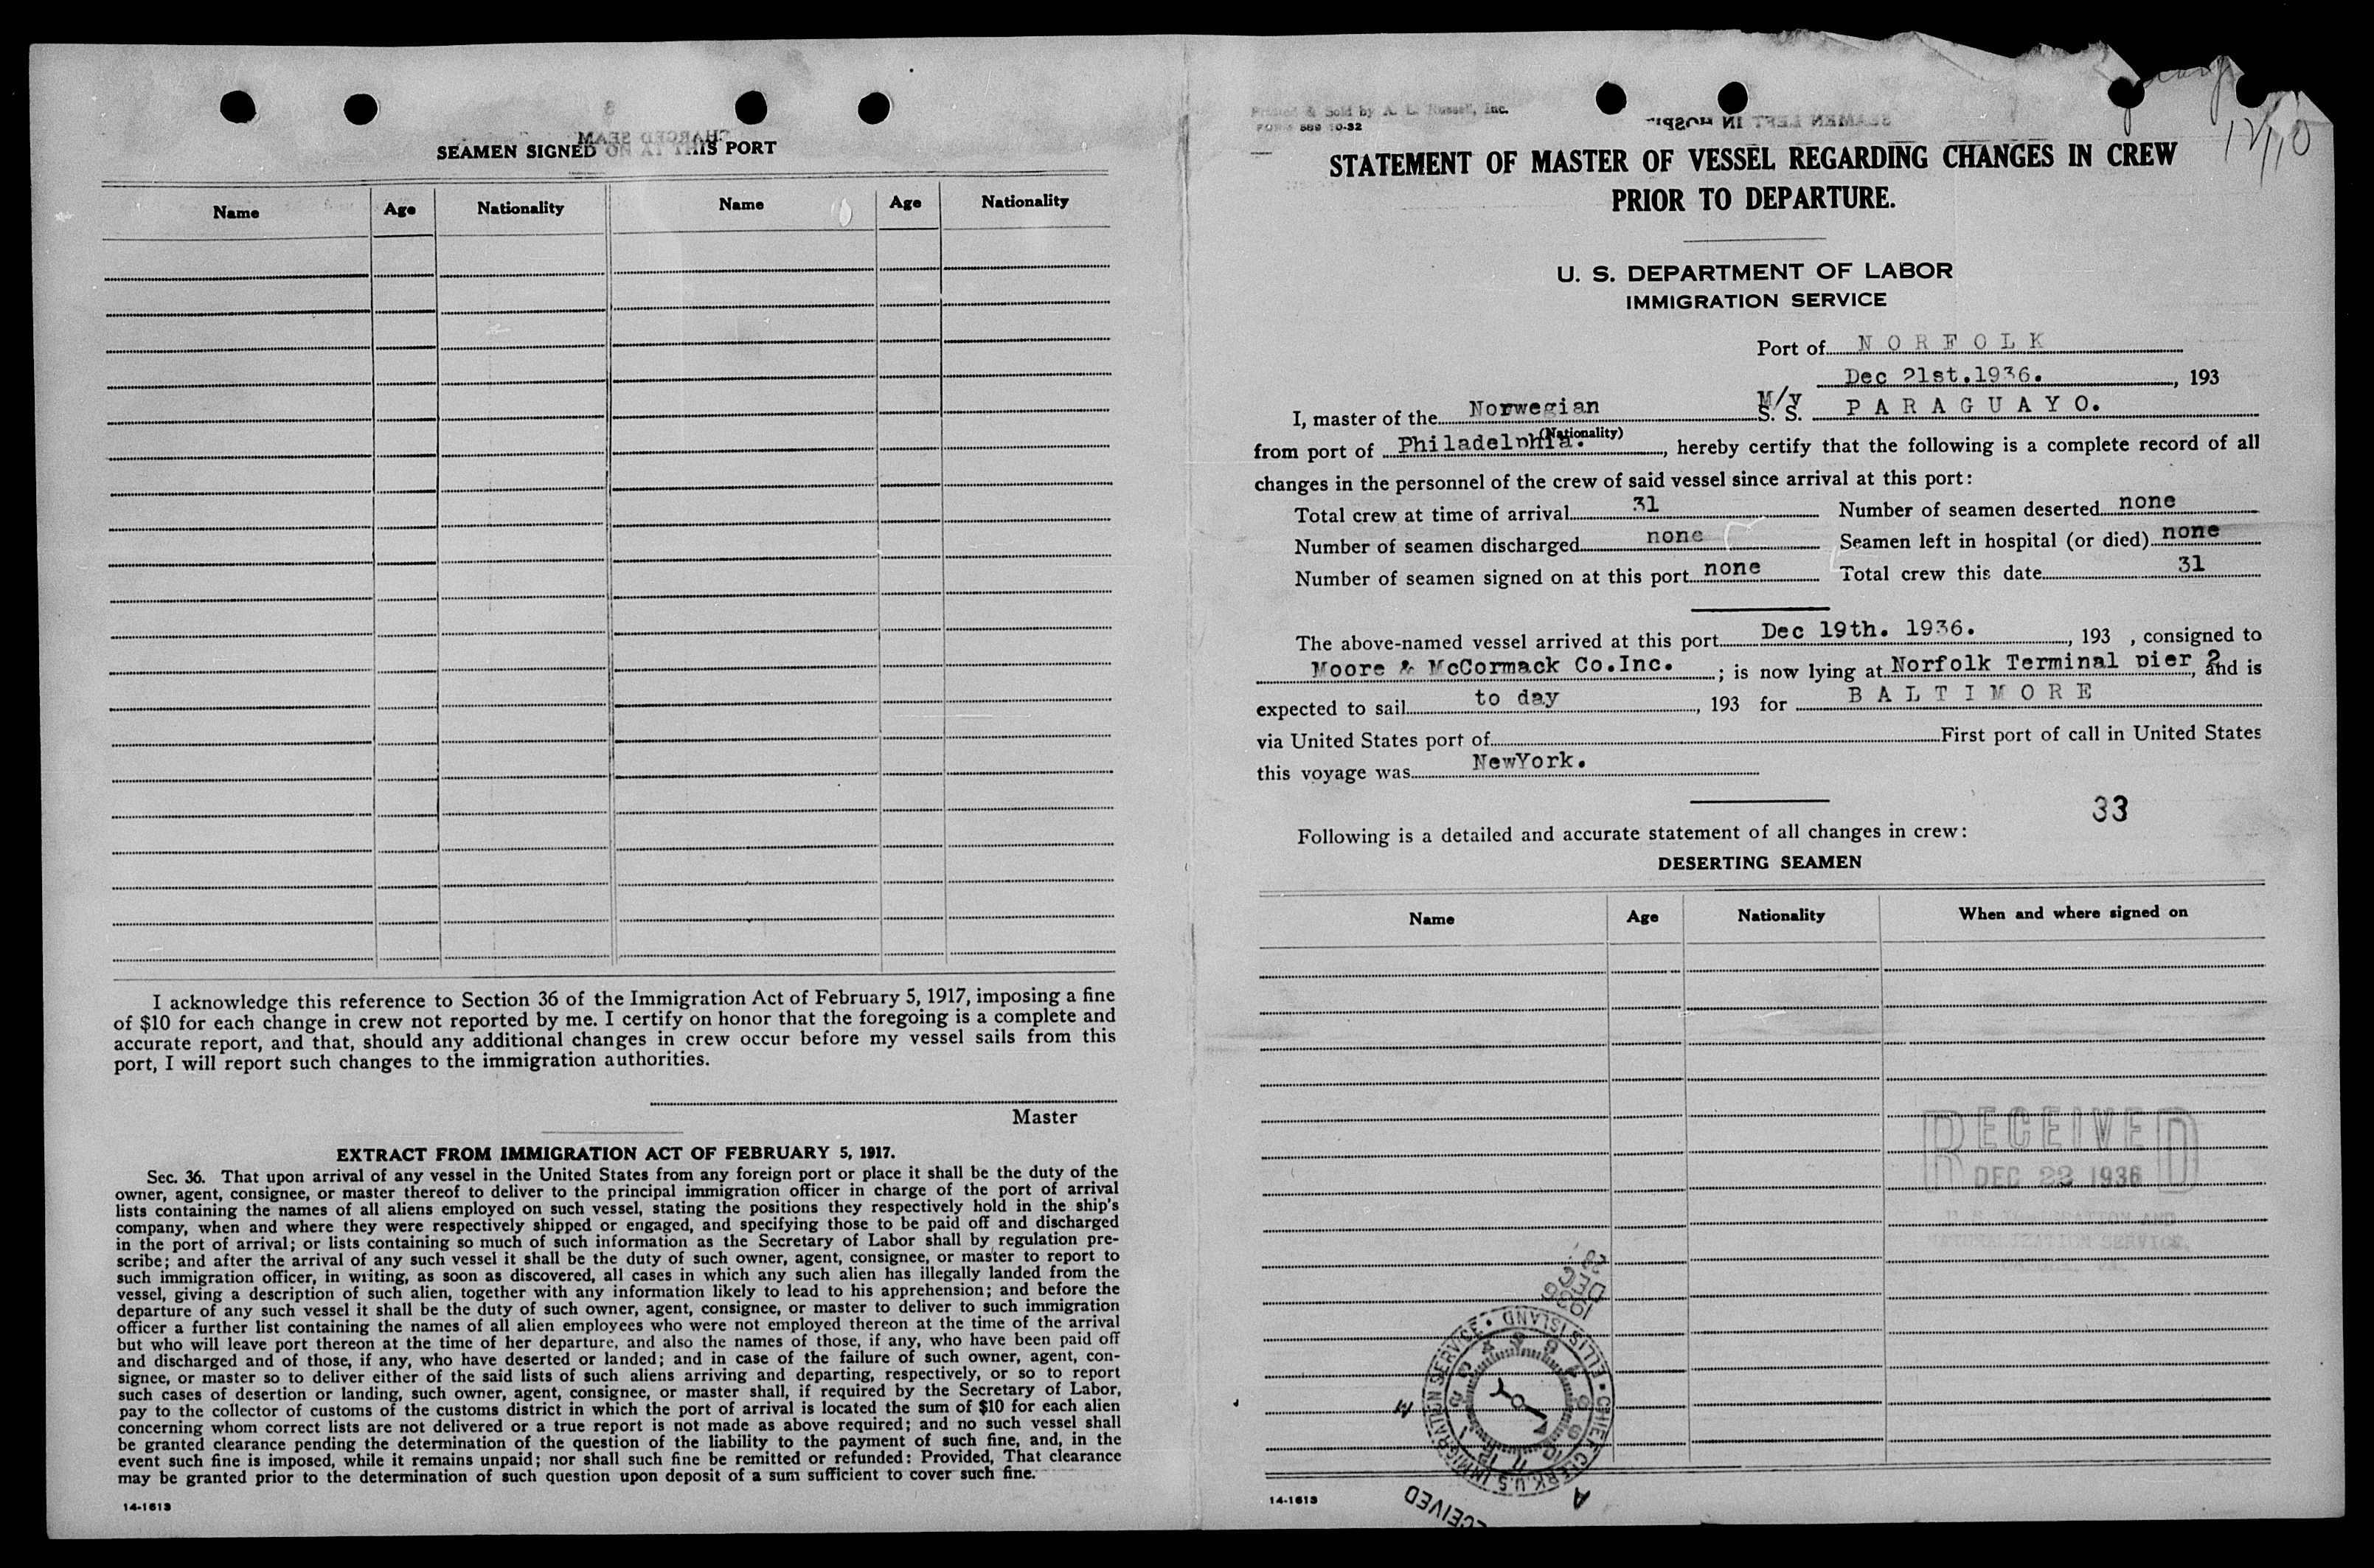 SEAMEN SIGNED ON AT THIS PORT
Name Age Nationality Name Age Nationality
I acknowledge this reference to Section 36 of the Immigration Act of February 5, 1917, imposing a fine
of $10 for each change in crew not reported by me. I certify on honor that the foregoing is a complete and
accurate report, and that, should any additional changes in crew occur before my vessel sails from this
port, I will report such changes to the immigration authorities.
Master
EXTRACT FROM IMMIGRATION ACT OF FEBRUARY 5, 1917.
Sec. 36. That upon arrival of any vessel in the United States from any foreign port or place it shall be the duty of the
owner, agent, consignee, or master thereof to deliver to the principal immigration officer in charge of the port of arrival
lists containing the names of all aliens employed on such vessel, stating the positions they respectively hold in the ship's
company, when and where they were respectively shipped or engaged, and specifying those to be paid off and discharged
in the port of arrival; or lists containing so much of such information as the Secretary of Labor shall by regulation pre-
scribe; and after the arrival of any such vessel it shall be the duty of such owner, agent, consignee, or master to report to
such immigration officer, in writing, as soon as discovered, all cases in which any such alien has illegally landed from the
vessel, giving a description of such alien, together with any information likely to lead to his apprehension; and before the
departure of any such vessel it shall be the duty of such owner, agent, consignee, or master to deliver to such immigration
officer a further list containing the names of all alien employees who were not employed thereon at the time of the arrival
but who will leave port thereon at the time of her departure, and also the names of those, if any, who have been paid off
and discharged and of those, if any, who have deserted or landed; and in case of the failure of such owner, agent, con-
signee, or master so to deliver either of the said lists of such aliens arriving and departing, respectively, or so to report
such cases of desertion or landing, such owner, agent, consignee, or master shall, if required by the Secretary of Labor,
pay to the collector of customs of the customs district in which the port of arrival is located the sum of $10 for each alien
concerning whom correct lists are not delivered or a true report is not made as above required; and no such vessel shall
be granted clearance pending the determination of the question of the liability to the payment of such fine, and, in the
event such fine is imposed, while it remains unpaid; nor shall such fine be remitted or refunded: Provided, That clearance
may be granted prior to the determination of such question upon deposit of a sum sufficient to cover such fine.
14-1613
Printed & Sold by A. L. Russell, Inc.
FORM 689 10-32
12/10
STATEMENT OF MASTER OF VESSEL REGARDING CHANGES IN CREW
PRIOR TO DEPARTURE.
U. S. DEPARTMENT OF LABOR
IMMIGRATION SERVICE
Port of NORFOLK
Dec 21st.1936. , 193
I, master of the Norwegian M/v S. S. PARAGUAYO.
(Nationality)
from port of Philadelphia. , hereby certify that the following is a complete record of all
changes in the personnel of the crew of said vessel since arrival at this port:
Total crew at time of arrival 31 Number of seamen deserted none
Number of seamen discharged none Seamen left in hospital (or died) none
Number of seamen signed on at this port none Total crew this date 31
The above-named vessel arrived at this port Dec 19th. 1936. , 193 , consigned to
Moore & McCormack Co.Inc. ; is now lying at Norfolk Terminal pier 2 , and is
expected to sail to day , 193 for BALTIMORE
via United States port of First port of call in United States
this voyage was NewYork.
33
Following is a detailed and accurate statement of all changes in crew:
DESERTING SEAMEN
Name Age Nationality When and where signed on
RECEIVED
DEC 22 1936
U. S. IMMIGRATION AND
NATURALIZATION SERVICE,
1936
DEC
CHIEF CLERK U.S. IMMIGRATION SERVICE • ELLIS ISLAND •
1 2 3 4 5 6 7 8 9 10 11 12
M
A
RECEIVED
14-1613